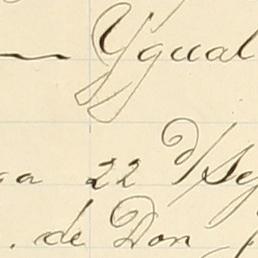 Ygual
22 d/
. de Don